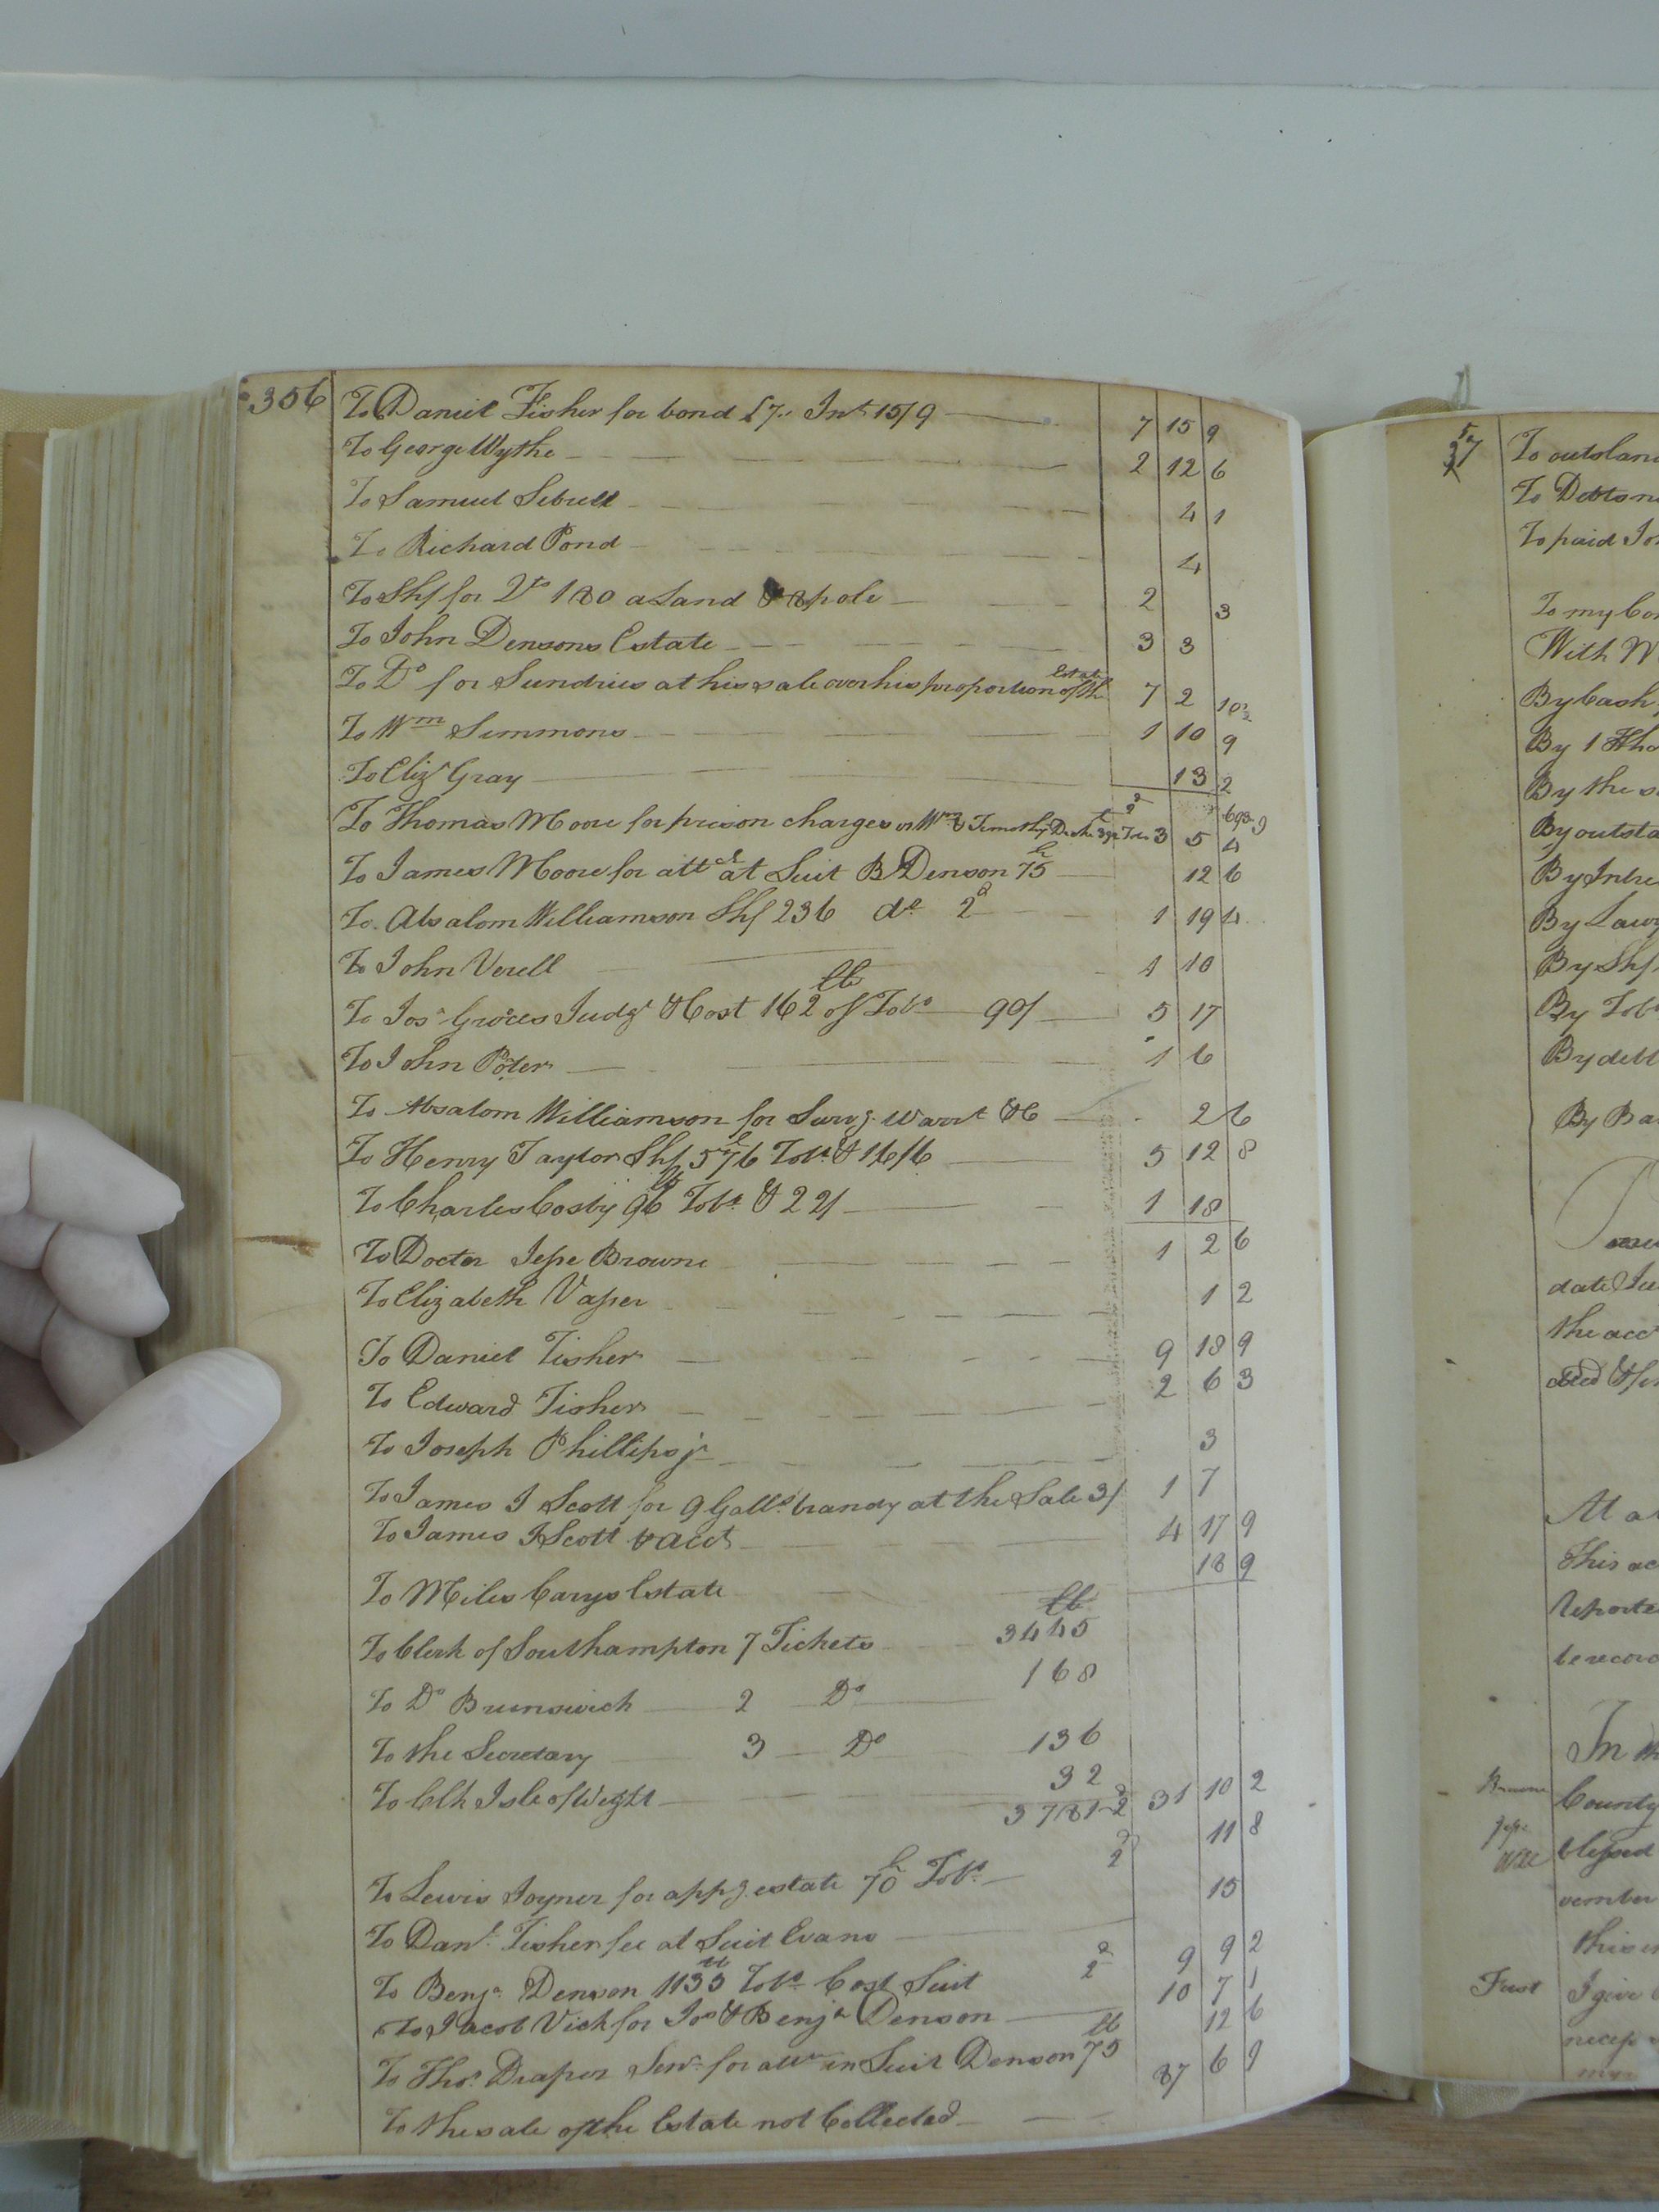 356
To Daniel Fisher for bond £7.. Int 15/9 7 15 9
To George Wythe 2 12 6
To Samuel Sebrell 4 1
To Richard Pond 4
To Shf for 180 a Land & 8 pole 2 3
To John Densons Estate 3 3
To Do for Sundries at his sale over his proportion of the Estate 7 2 10½
To Wm Simmons 1 10 9
To Eliza Gray 13 2
To Thomas Moore for prison charges vs Wm & Timothy 3 5 4
To James Moore for attce at Suit B Denson 75 12 6
To Absalom Williamson Shf 236 do 2d 1 19 4
To John Verell 1 10
To Jos Groces Judgt & Cost 162 lb of Tobo 90/ 5 17
To John Peter 1 6
To Absalom Williamson for Survg. Warrt &C 2 6
To Henry Taylor Shf 576 Tobo & 16/6 5 12 8
To Charles Cosby 96 lb Tobo & 22/ 1 18
To Docter Jesse Browne 1 2 6
To Elizabeth Vasser 1 2
To Daniel Fisher 9 18 9
To Edward Fisher 2 6 3
To Joseph Phillips jr 3
To James J Scott for 9 Galls. brandy at the Sale 3/ 1 7
To James J Scott acct 4 17 9
To Miles Carys Estate 18 9
To Clerk of Southampton 7 Tickets lb 3445
To Do Brunswick 2 Do 168
To the Secretary 3 Do 136
To Clk Isle of Weight 32
3781 2d 31 10 2
To Lewis Joyner for appg. estate 70 Tobo 2d 11 8
To Danl. Fisher fee at Suit Evans 15
To Benja. Denson 1133 lb Tobo Cost Suit 2d 9 9 2
To Jacob Vick for Jos & Benja Denson 10 7 1
To Thos. Draper Senr. for attce in Suit Denson 75 lb 12 6
To the sale of the Estate not Collected 87 6 9
57
To outstan
To Debts
To paid
To my Com
With
By Cash
By 1
By the
By outsta
By Inte
By Shf
By Tobo
By debt
date
the acct
At a
This ac
Reporte
be record
In
Browne
Jesse
Will
County
blessed
vember
this
First
I give